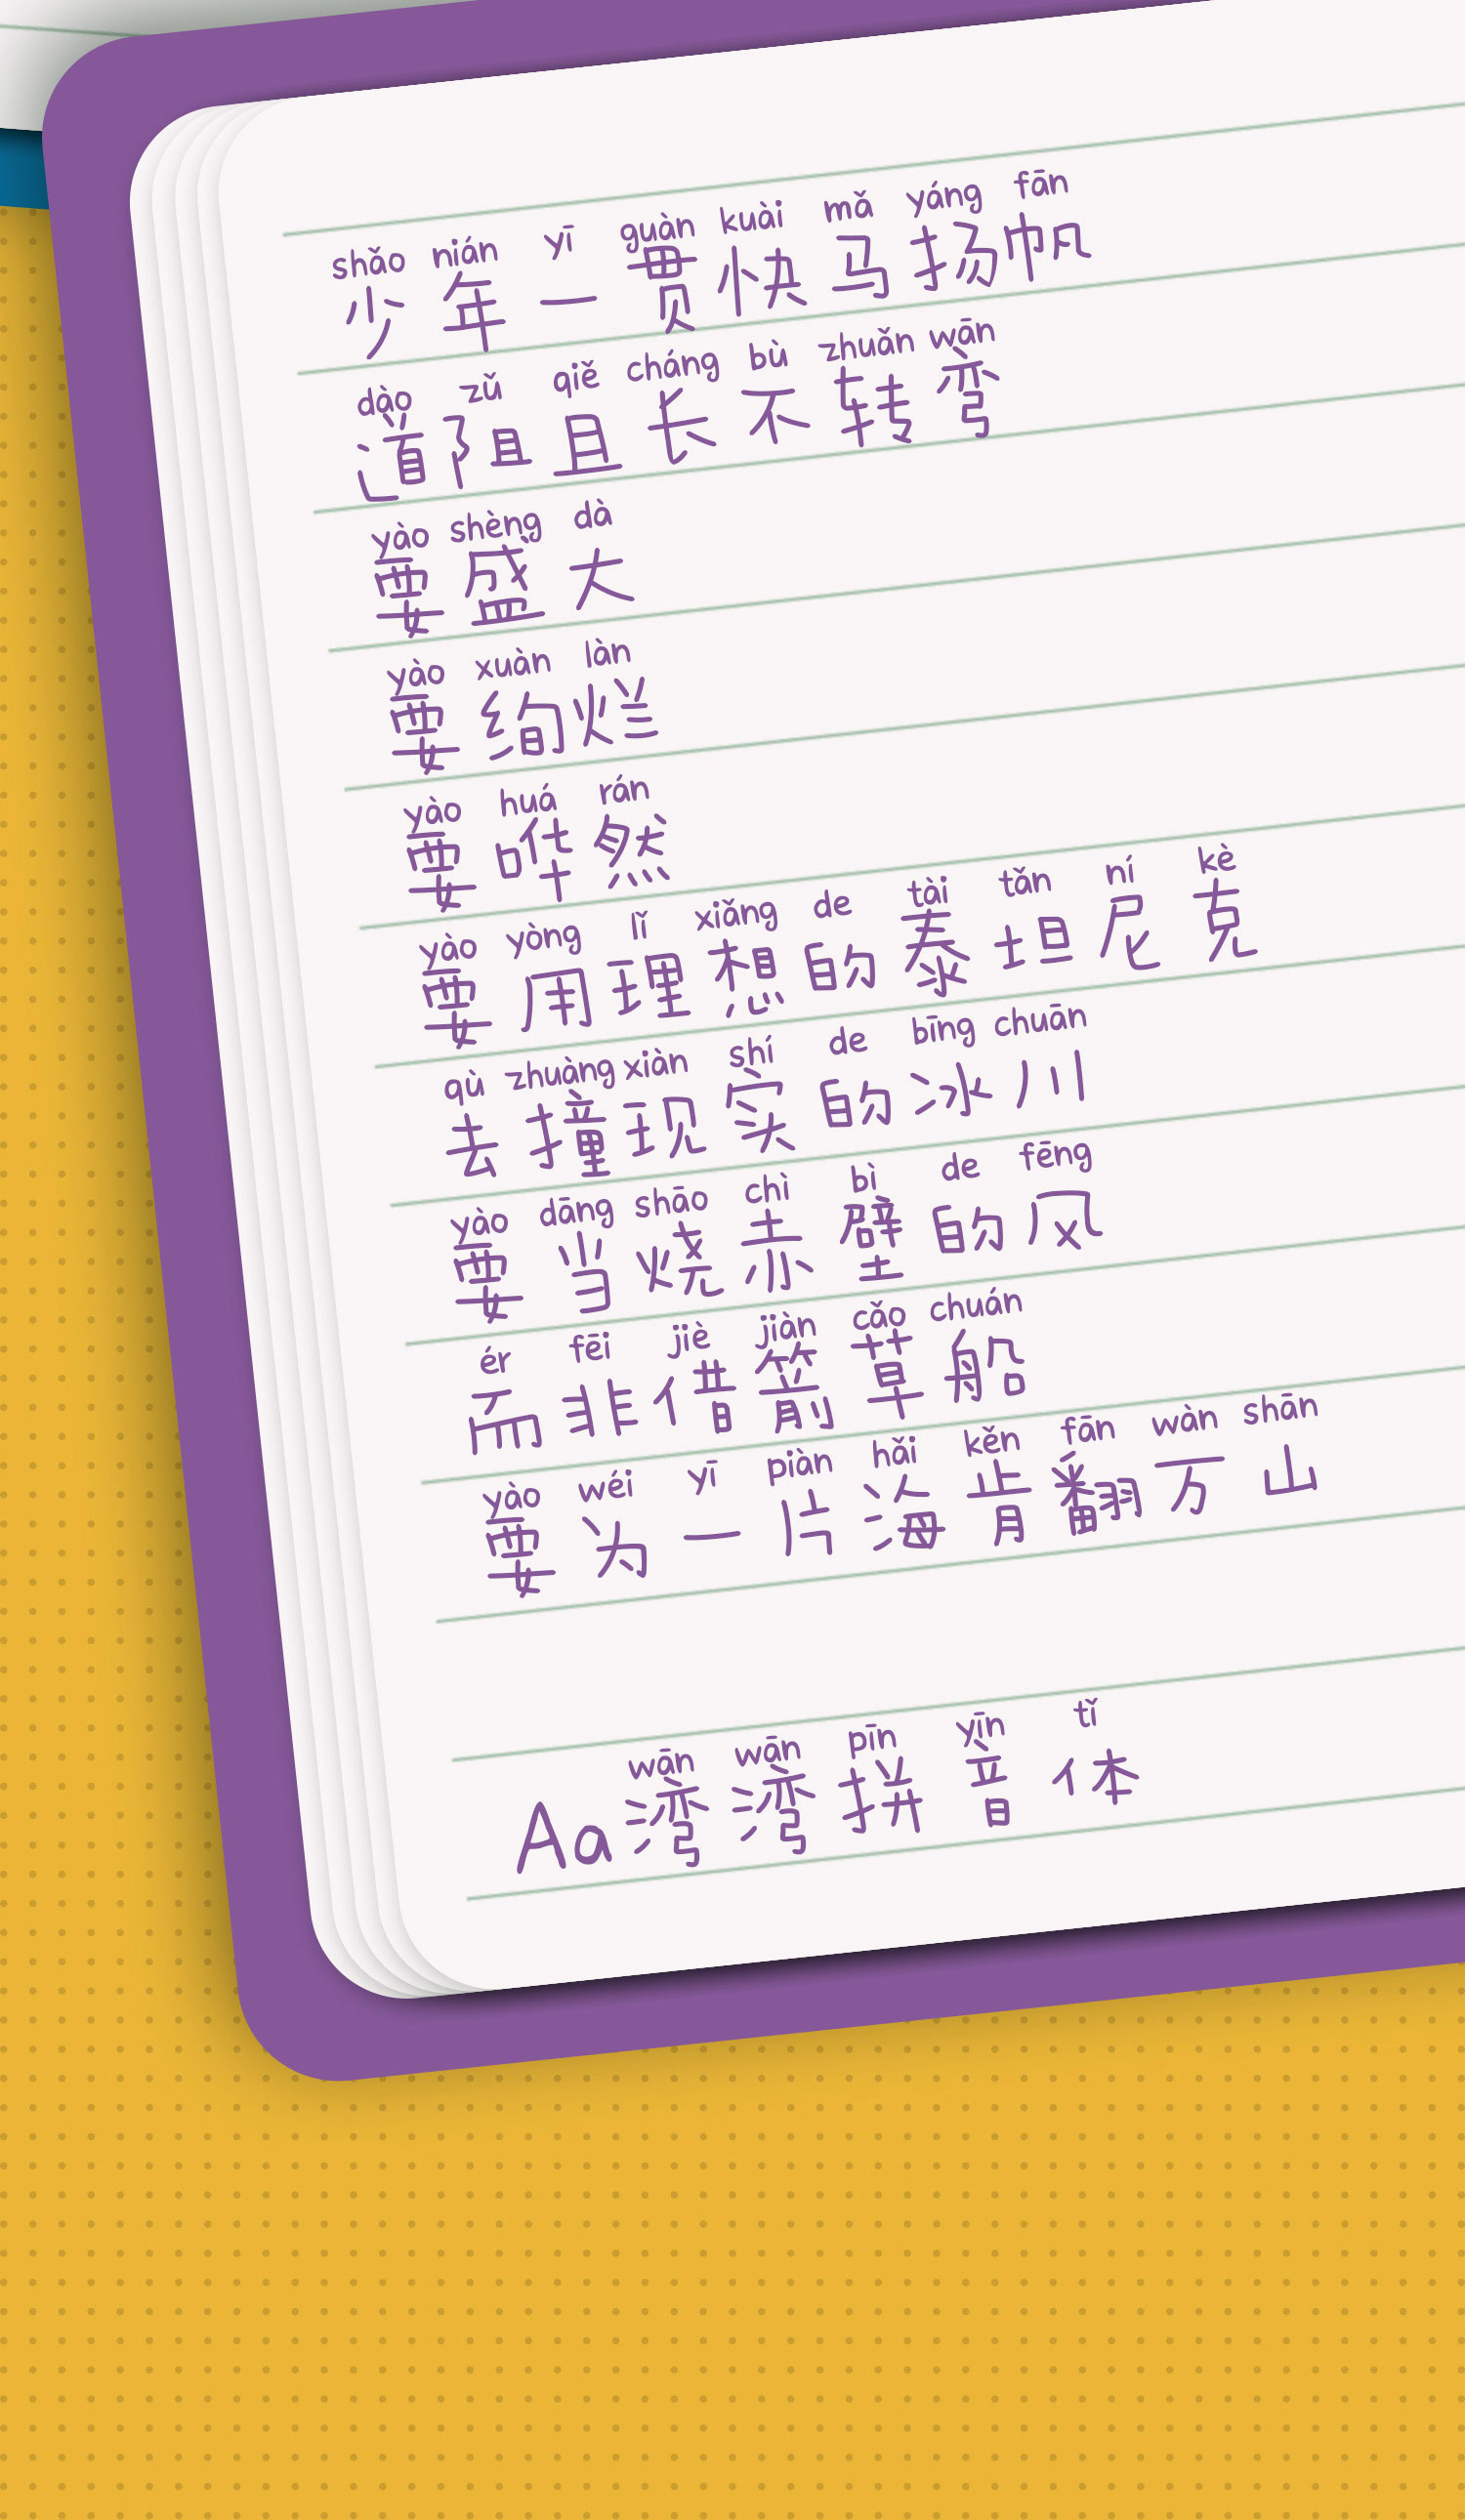 shǎo nián yī guàn kuài mǎ yáng fān
少年一贯快马扬帆
dào zǔ qiě cháng bù zhuǎn wān
道阻且长不转弯
yào shèng dà
要盛大
yào xuàn làn
要绚烂
yào huá rán
要哗然
yào yòng lǐ xiǎng de tài tǎn ní kè
要用理想的泰坦尼克
qù zhuàng xiàn shí de bīng chuān
去撞现实的冰川
yào dāng shāo chì bì de fēng
要当烧赤壁的风
ér fēi jiè jiàn cǎo chuán
而非借箭草船
yào wéi yī piàn hǎi kěn fān wàn shān
要为一片海肯翻万山
wān wān pīn yīn tǐ
Aa湾湾拼音体